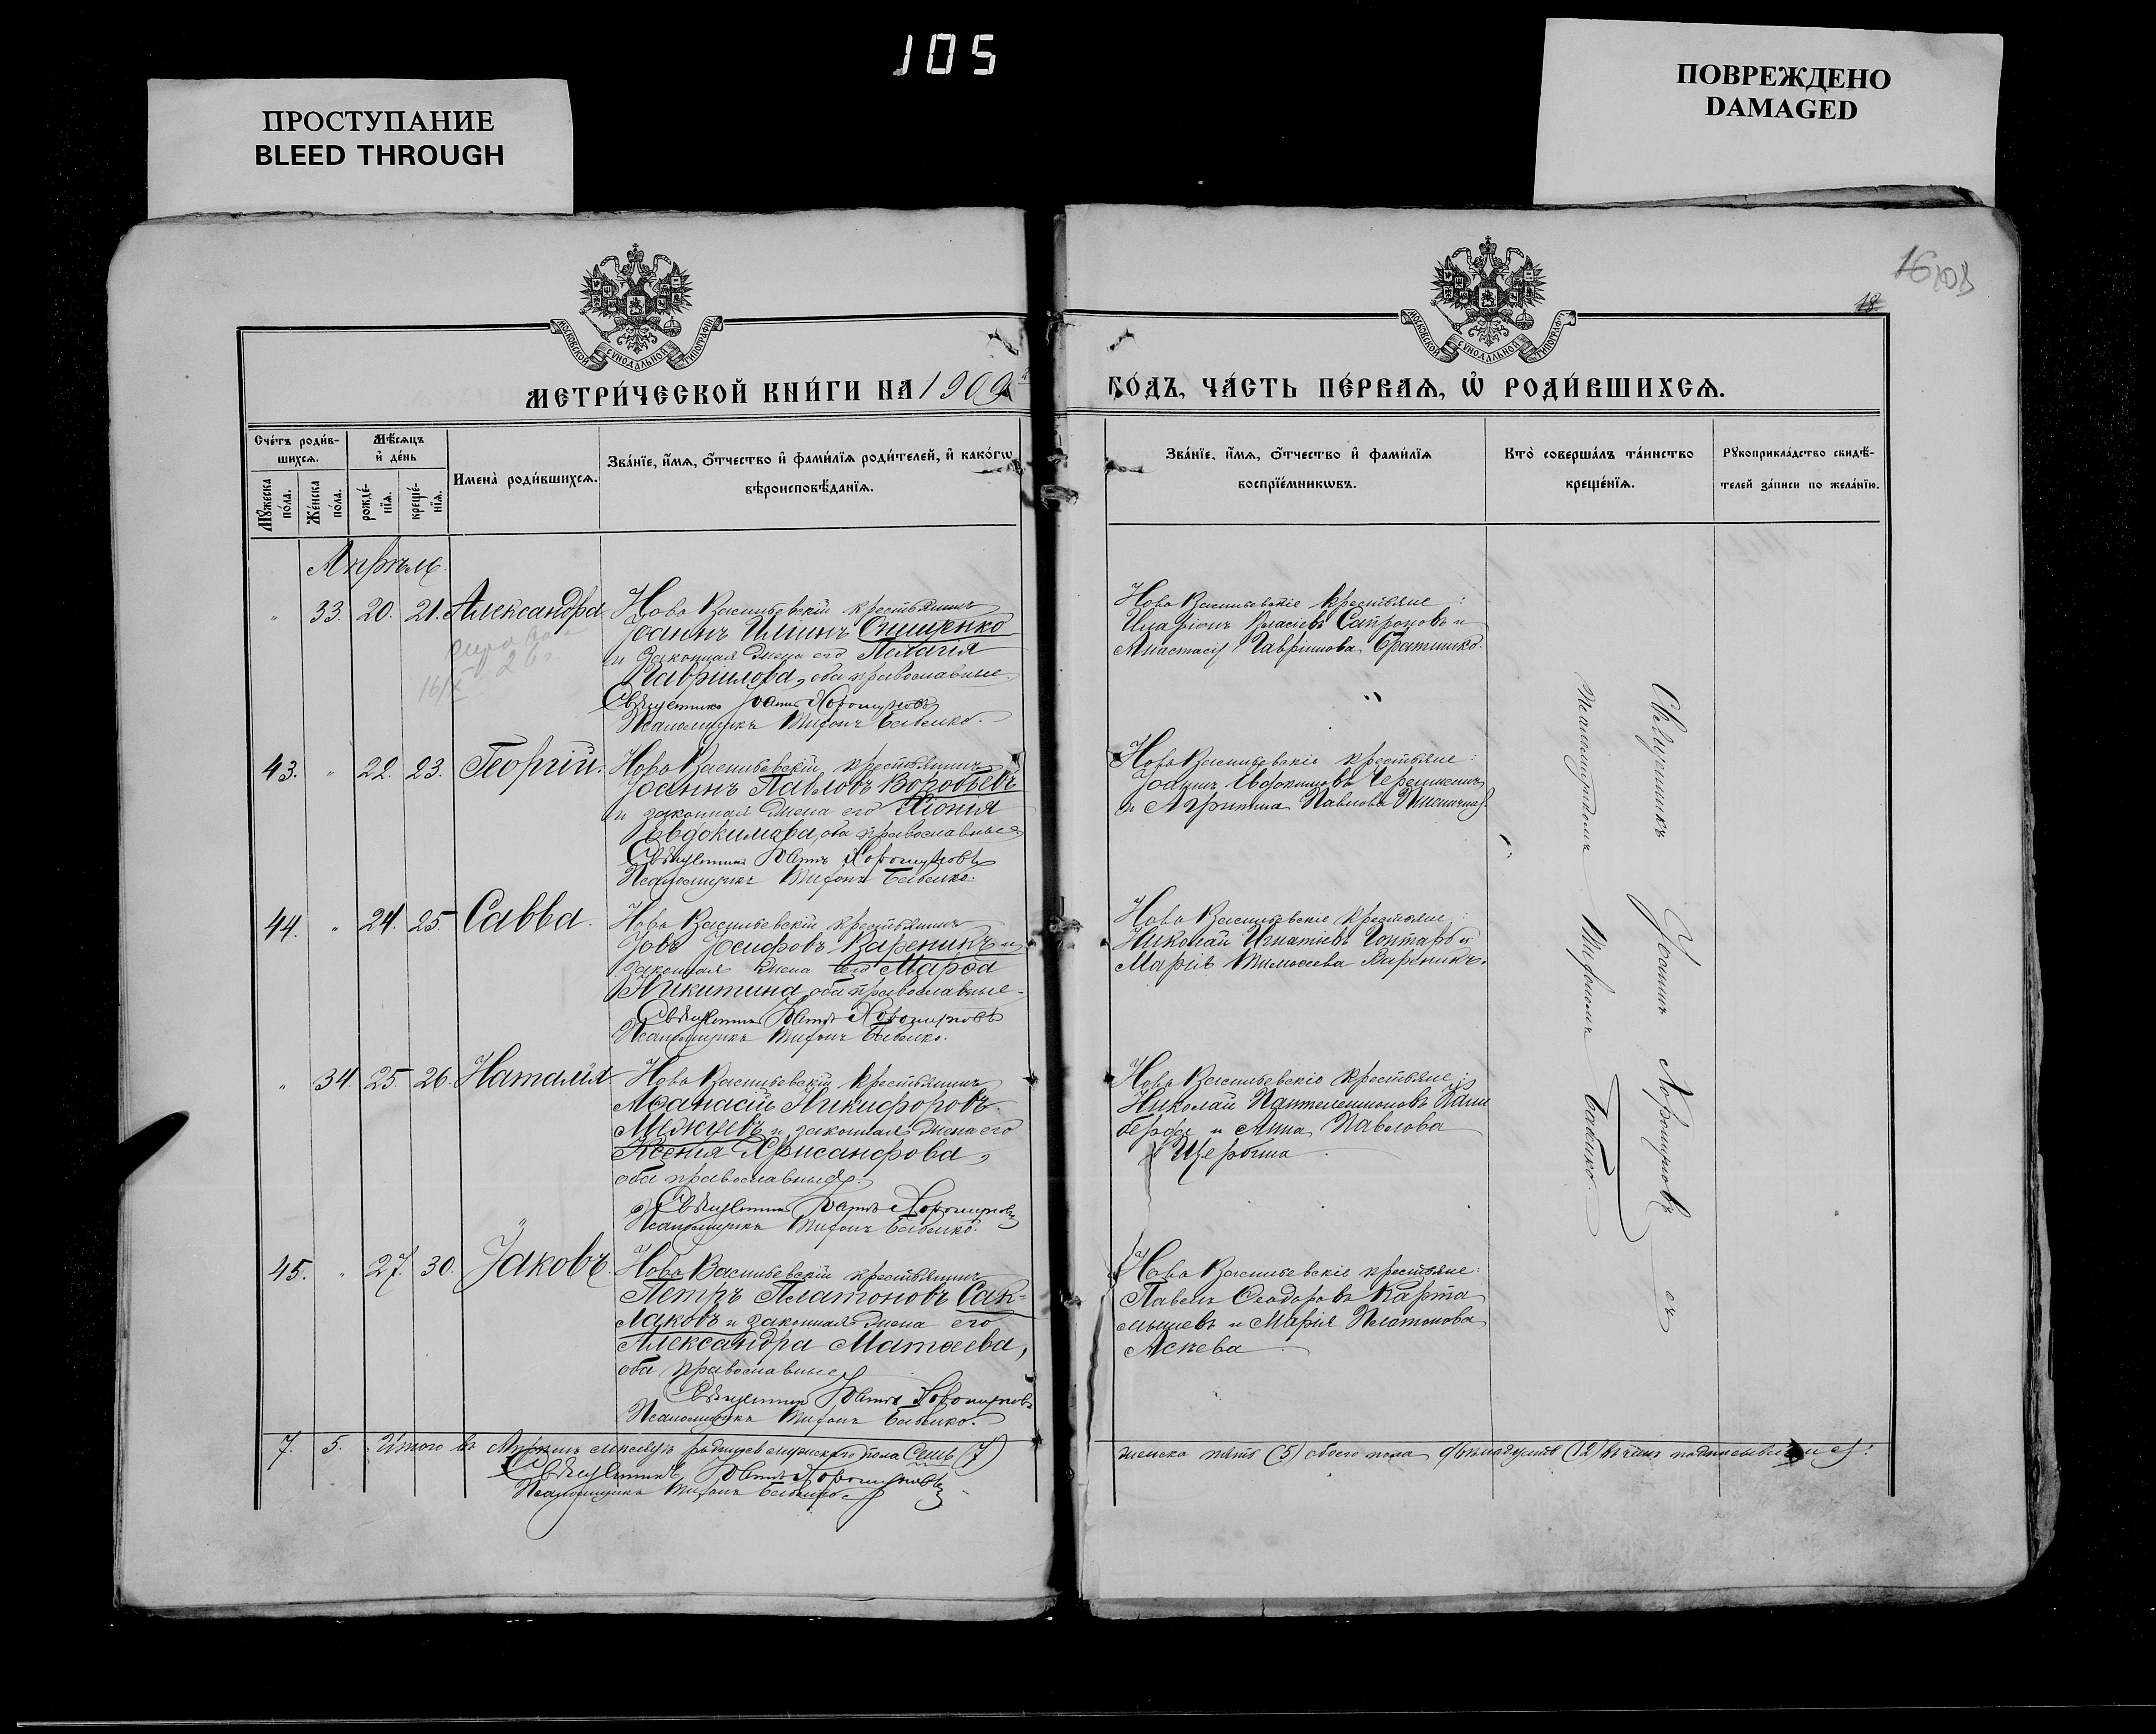 105
ПРОСТУПАНИЕ
BLEED THROUGH
ПОВРЕЖДЕНО
DAMAGED
16
18
МОСКОВСКОЙ СѴНОДАЛЬНОЙ ТИПОГРАФІИ
МОСКОВСКОЙ СѴНОДАЛЬНОЙ ТИПОГРАФІИ
МЕТРИ́ЧЕСКОЙ КНИ́ГИ НА 1909
ГО́ДЪ, ЧА́СТЬ ПЕ́РВАѦ, Ѡ҆ РОДИ́ВШИХСѦ.
Сче́тъ роди́в-
шихсѧ.
Мꙋ́жеска по́ла.
Же́нска по́ла.
Мѣ́сѧцъ
и҆ де́нь
рожде́-
нїѧ.
креще́-
нїѧ.
И҆мена̀ роди́вшихсѧ.
Зва́нїе, и҆́мѧ, ѻ҆́тчество и҆ фами́лїѧ роди́телей, и҆ како́гѡ
вѣроисповѣ́данїѧ.
Зва́нїе, и҆́мѧ, ѻ҆́тчество и҆ фами́лїѧ
воспрїе́мникѡвъ.
Кто̀ соверша́лъ та́инство
креще́нїѧ.
Рꙋкоприкла́дство свидѣ́-
телей за́писи по жела́нїю.
Апрѣль
" 33. 20. 21. Александра
Ново Васильевскій крестьянинъ
Іоаннъ Иліинъ Онищенко
и законная жена его Пелагія
Гавріилова, оба православные.
Священникъ Іоаннъ Хорошуновъ
Псаломщикъ Тифонъ Бабенко.
Ново Васильевскіе крестьяне:
Иларіонъ Власіевъ Сапроновъ и
Анастасія Гавріилова
43. " 22. 23. Георгій.
Ново Васильевскій крестьянинъ
Іоаннъ Павловъ Воробьевъ
и законная жена его Хіонія
Евдокимова, оба православные
Священникъ Іоаннъ Хорошуновъ
Псаломщикъ Тифонъ Бабенко.
Ново Васильевскіе крестьяне:
Іоаннъ Евдокимовъ
и Павлова
44. " 24. 25. Савва.
Ново Васильевскій крестьянинъ
Іовъ Іосифовъ Вареникъ и
законная жена его Марѳа
Никитина, оба православные.
Священникъ Іоаннъ Хорошуновъ
Псаломщикъ Тифонъ Бабенко.
Ново Васильевскіе крестьяне:
Николай Игнатіевъ Гонтарь и
Марія Тимоѳеева Вареникъ.
" 34. 25. 26. Наталія
Ново Васильевскій крестьянинъ
Аѳанасій Никифоровъ
Межуевъ и законная жена его
Ксенія Хрисанфова,
оба православные.
Священникъ Іоаннъ Хорошуновъ
Псаломщикъ Тифонъ Бабенко.
Ново Васильевскіе крестьяне:
Николай Пантелеимоновъ
и Анна Павлова
Щербина
45. " 27. 30. Іаковъ.
Ново Васильевскій крестьянинъ
Петръ Платоновъ Сак=
лаковъ и законная жена его
Александра Матѳеева,
оба православные.
Священникъ Іоаннъ Хорошуновъ
Псаломщикъ Тифонъ Бабенко.
Ново Васильевскіе крестьяне:
Павелъ Ѳеодоровъ Карта
мышевъ и Марія Платонова
Аскева
Священникъ Іоаннъ Хорошуновъ съ
Псаломщикомъ Тифономъ Бабенко.
7. 5. Итого въ Апрѣлѣ мѣсяцѣ родилось мужского пола семь (7)
женска пять (5) обоего пола двѣнадцать (12) въ чемъ подписываемся:
Священникъ Іоаннъ Хорошуновъ
Псаломщикъ Тифонъ Бабенко